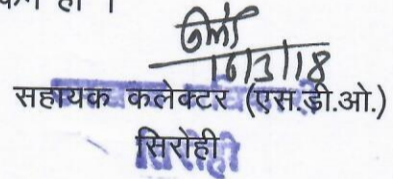 हो ।
16/3/18
सहायक कलेक्टर (एस.डी.ओ.)
सिरोही
सिरोही